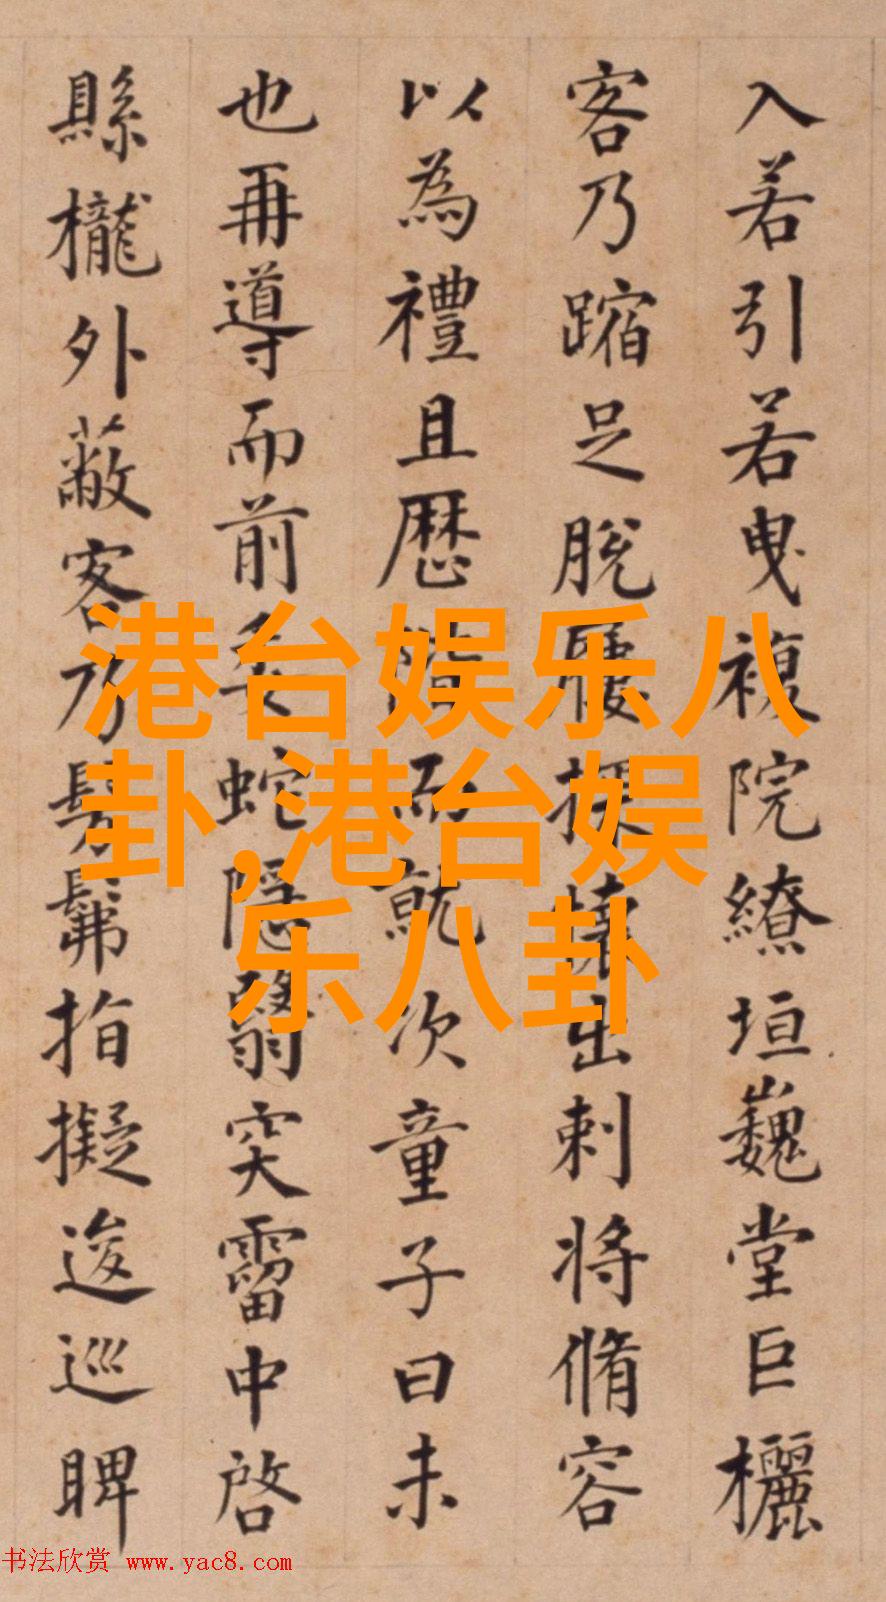 入若引若曳複院繚垣巍堂巨欐
客乃蹜足脫屨探懷出刺將脩容
以為禮且歷階而就次童子曰未
也再導而前委蛇隱翳突霤中啓
縣櫳外蔽客乃髣髴指擬逡巡睥
港台娱乐八
卦,港台娱
乐八卦
书法欣赏 www.yac8.com